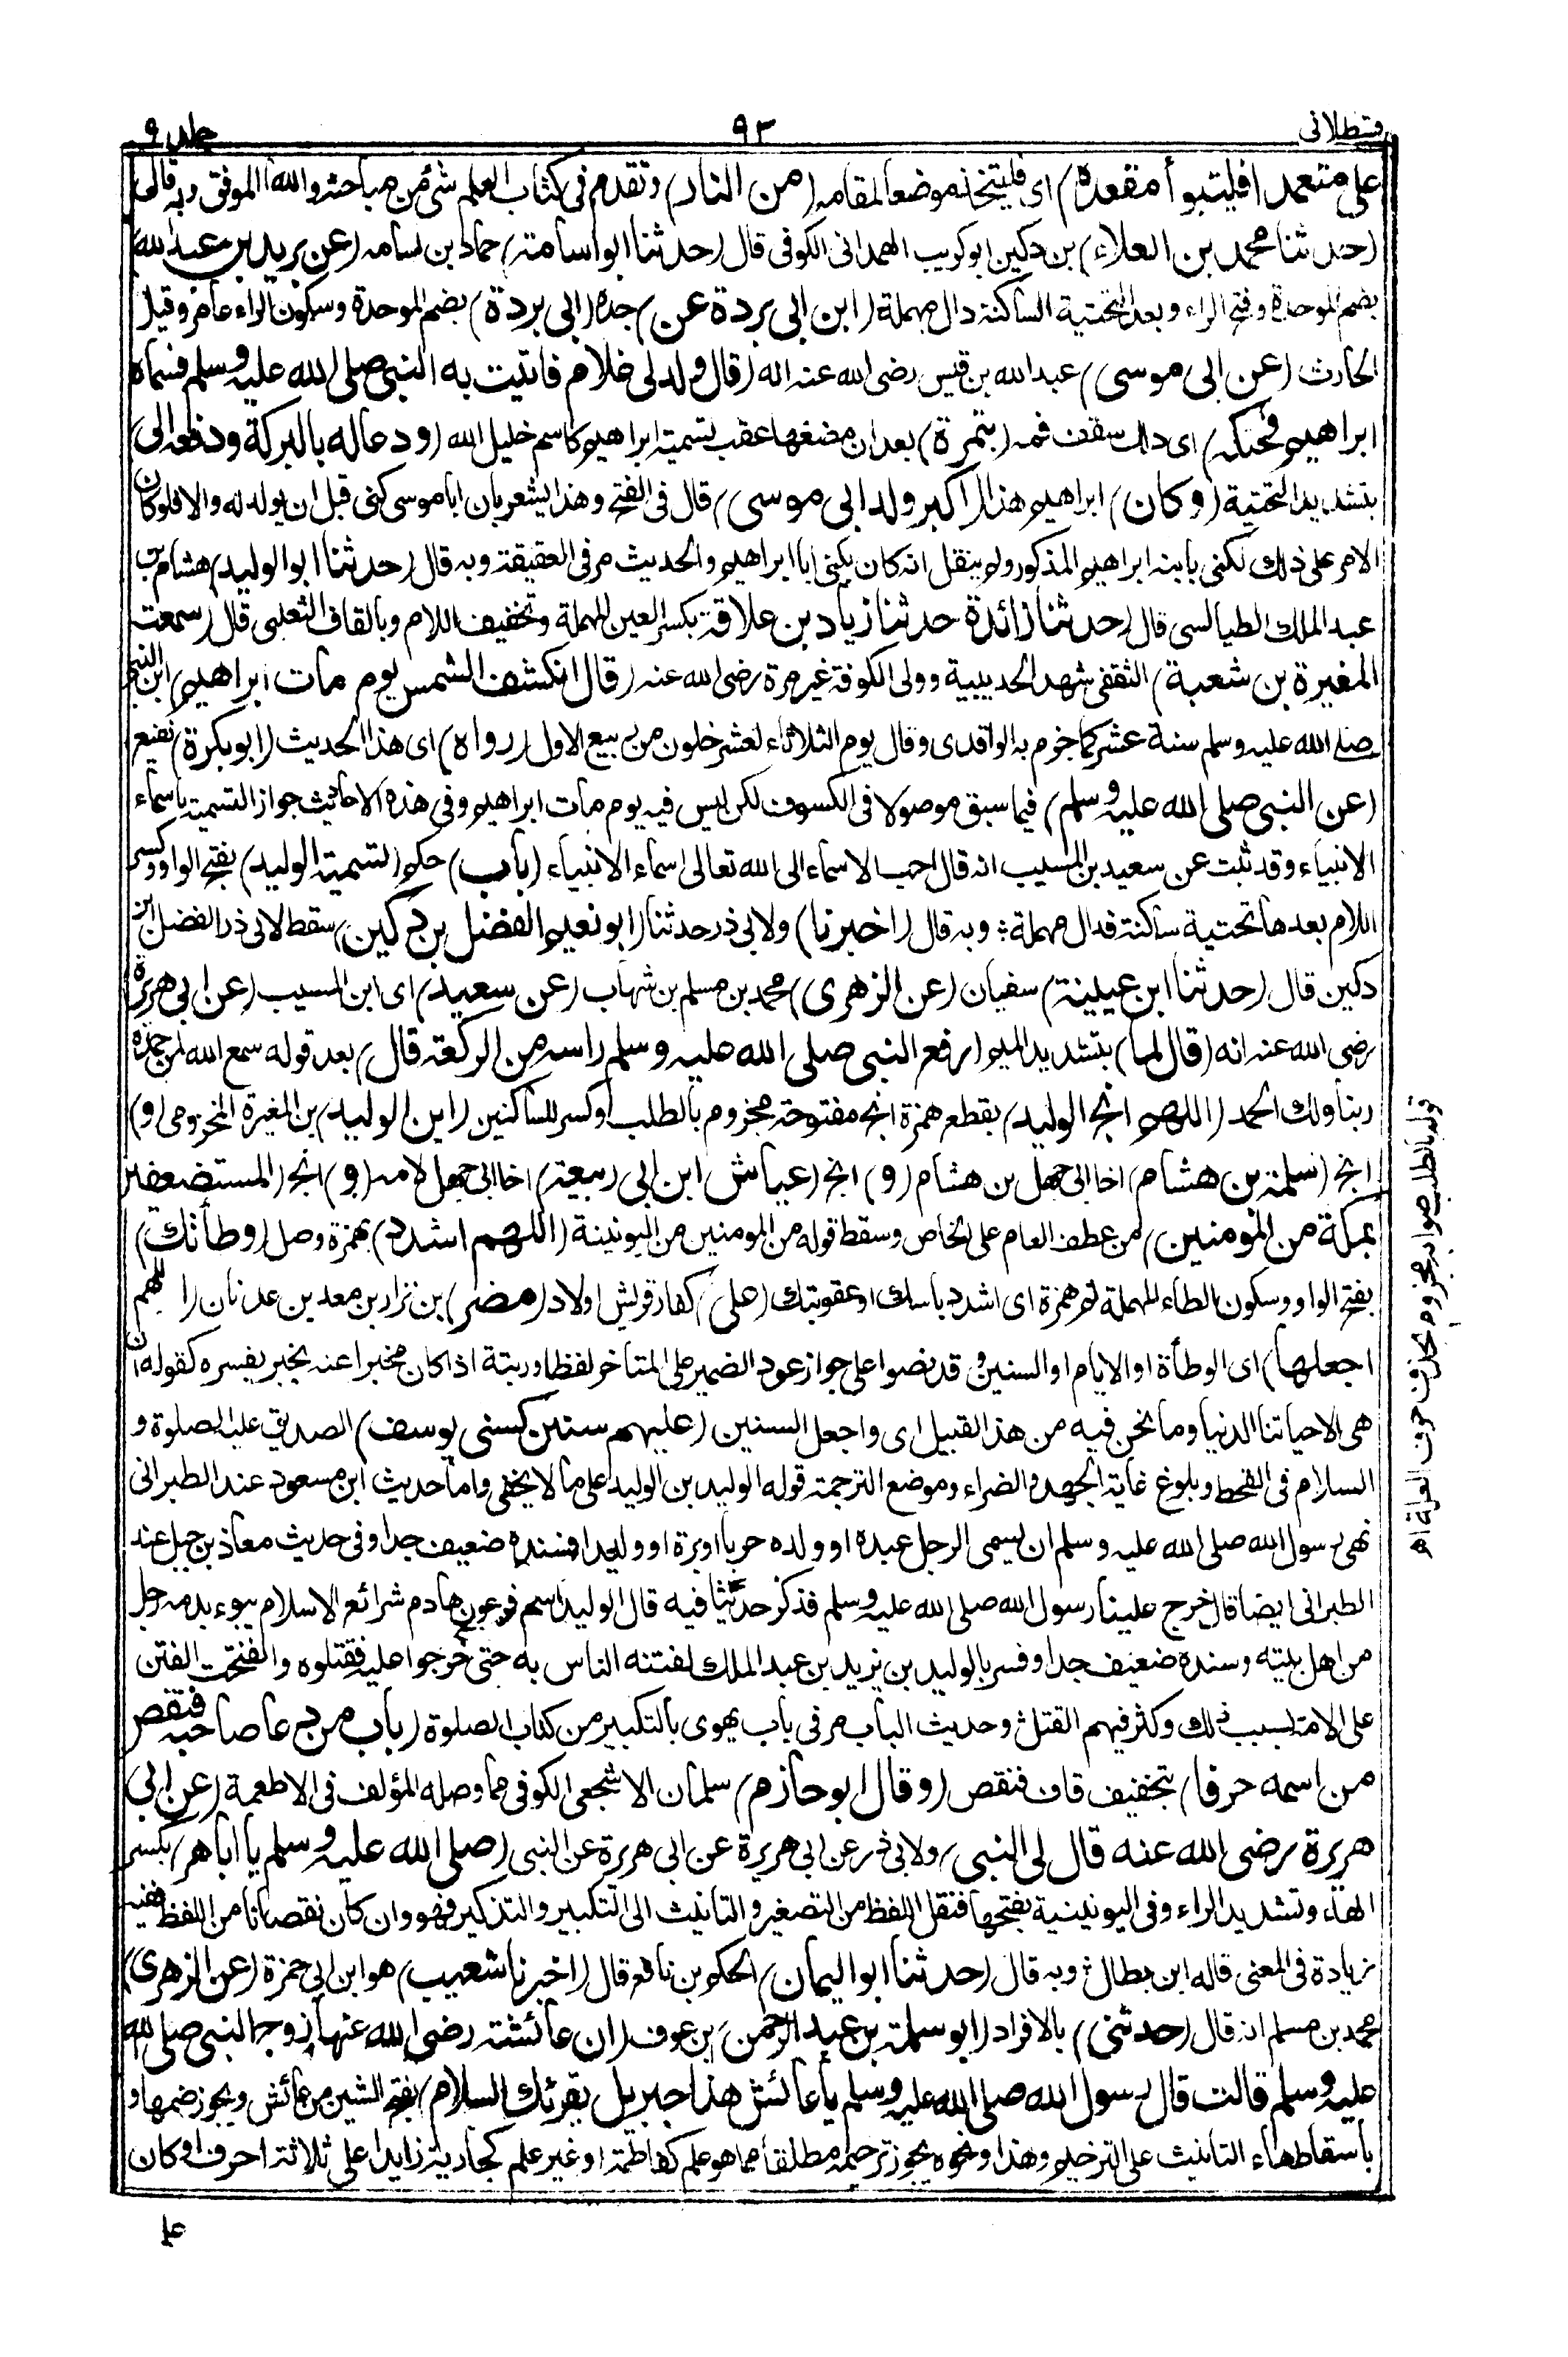 قسطلانی
٩٣
جلد ٩
علی متعمدا فلیتبوأ مقعدہ) ای فلیتخذ موضعا لمقامہ (من النار) وتقدم فی کتاب العلم شئ من مباحثہ واللہ الموفق وبہ قال
(حدثنا محمد بن العلاء) بن دکین ابو کریب الھمدانی الکوفی قال (حدثنا ابو اسامة) حماد بن اسامہ (عن برید بن عبداللہ)
بضم الموحدة وفتح الراء وبعد التحتیة الساکنة دال مہملة (ابن ابی بردة عن) جدہ (ابی بردة) بضم الموحدة وسکون الراء عامر وقیل
الحارث (عن ابی موسی) عبد اللہ بن قیس رضی اللہ عنہ انہ (قال ولد لی غلام فاتیت بہ النبی صلی اللہ علیہ وسلم فسماہ
ابراھیم فحنکہ) ای دلك سقف فمہ (بتمرة) بعد ان مضغھا عقب تسمیتہ ابراھیم کاسم خلیل اللہ (ودعا لہ بالبرکة ودفعہ الی)
بتشدید التحتیة (وکان) ابراھیم ھذا (اکبر ولد ابی موسی) قال فی الفتح وھذا یشعر بان ابا موسی کنی قبل ان یولد لہ والا فلو کان
الامر علی ذلك لکنی بابنہ ابراھیم المذکور ولم ینقل انہ کان یکنی ابا ابراھیم والحدیث مر فی العقیقة وبہ قال (حدثنا ابو الولید) ھشام بن
عبد الملك الطیالسی قال (حدثنا زائدة حدثنا زیاد بن علاقة) بکسر العین المہملة وتخفیف اللام وبالقاف الثعلبی قال (سمعت
المغیرة بن شعبة) الثقفی شھد الحدیبیة وولی الکوفة غیر مرة رضی اللہ عنہ (قال انکسفت الشمس یوم مات ابراھیم) ابن النبی
صلی اللہ علیہ وسلم سنة عشر کما جزم بہ الواقدی وقال یوم الثلاثاء لعشر خلون من ربیع الاول (رواہ) ای ھذا الحدیث (ابو بکرة) نفیع
(عن النبی صلی اللہ علیہ وسلم) فیما سبق موصولا فی الکسوف لکن لیس فیہ یوم مات ابراھیم وفی ھذہ الاحادیث جواز التسمیة باسماء
الانبیاء وقد ثبت عن سعید بن المسیب انہ قال احب الاسماء الی اللہ تعالی اسماء الانبیاء (باب) حکم (تسمیة الولید) بفتح الواو وکسر
اللام بعدھا تحتیة ساکنة فدال مہملة ؛ وبہ قال (اخبرنا) ولابی ذر حدثنا (ابو نعیم الفضل بن دکین) سقط لابی ذر الفضل بن
دکین قال (حدثنا ابن عیینة) سفیان (عن الزھری) محمد بن مسلم بن شھاب (عن سعید) ای ابن المسیب (عن ابی ھریرة
رضی اللہ عنہ انہ (قال لما) بتشدید المیم (رفع النبی صلی اللہ علیہ وسلم راسہ من الرکعة قال) بعد قولہ سمع اللہ لمن حمدہ
ربنا ولك الحمد (اللھم انج الولید) بقطع ھمزة انج مفتوحة مجزوم بالطلب او کسر للساکنین (ابن الولید) بن المغیرة المخزومی (و)
انج (سلمة بن ھشام) اخا ابی جھل بن ھشام (و) انج (عیاش ابن ابی ربیعة) اخا ابی جھل لامہ (و) انج (المستضعفین
بمکة من المؤمنین) من عطف العام علی الخاص وسقط قولہ من المومنین من الیونینیة (اللھم اشدد) بھمزة وصل (وطأتك)
بفتح الواو وسکون الطاء المہملة ثم ھمزة ای اشدد باسك او عقوبتك (علی) کفار قریش اولاد (مضر) بن نزار بن معد بن عدنان (اللھم
اجعلھا) ای الوطأة او الایام او السنین وقد نصوا علی جواز عود الضمیر علی المتاخر لفظا ورتبة اذا کان مخبرا عنہ بخبر یفسرہ کقولہ ان
ھی الاحیاتنا الدنیا وما نحن فیہ من ھذا القبیل ای واجعل السنین (علیھم سنین کسنی یوسف) الصدیق علیہ الصلوة و
السلام فی القحط وبلوغ غایة الجھد والضراء وموضع الترجمة قولہ الولید بن الولید علی ما لا یخفی واما حدیث ابن مسعود عند الطبرانی
نھی رسول اللہ صلی اللہ علیہ وسلم ان یسمی الرجل عبدہ او ولدہ حربا او مرة او ولیدا فسندہ ضعیف جدا وفی حدیث معاذ بن جبل عند
الطبرانی ایضا قال خرج علینا رسول اللہ صلی اللہ علیہ وسلم فذکر حدیثا فیہ قال الولید اسم فرعون ھادم شرائع الاسلام یبوء بدمہ رجل
من اھل بیتہ وسندہ ضعیف جدا وفسر بالولید بن یزید بن عبد الملك لفتنة الناس بہ حتی خرجوا علیہ فقتلوہ وانفتحت الفتن
علی الامة بسبب ذلك وکثر فیھم القتل وحدیث الباب مر فی باب یھوی بالتکبیر من کتاب الصلوة (باب من دعا صاحبہ فنقص
من اسمہ حرفا) بتخفیف قاف فنقص (وقال ابو حازم) سلمان الاشجعی الکوفی مما وصلہ المؤلف فی الاطعمة (عن ابی
ھریرة رضی اللہ عنہ قال لی النبی) ولابی ذر عن ابی ھریرة عن النبی (صلی اللہ علیہ وسلم یا اباھر) بکسر
الھاء وتشدید الراء وفی الیونینیة بفتحھا فنقل اللفظ من التصغیر والتانیث الی التکبیر والتذکیر فھو وان کان نقصانا من اللفظ ففیہ
زیادة فی المعنی قالہ ابن بطال ؛ وبہ قال (حدثنا ابو الیمان) الحکم بن نافع قال (اخبرنا شعیب) ھو ابن ابی حمزة (عن الزھری)
محمد بن مسلم انہ قال (حدثنی) بالافراد (ابو سلمة بن عبد الرحمن) بن عوف (ان عائشة رضی اللہ عنھا زوج النبی صلی اللہ
علیہ وسلم قالت قال رسول اللہ صلی اللہ علیہ وسلم یا عائش ھذا جبریل یقرئك السلام) بفتح الشین من عائش ویجوز ضمھا و
باسقاط ھاء التانیث علی الترخیم وھذا ونحوہ یجوز ترخیمہ مطلقا مما ھو علم کفاطمة او غیر علم کجاریة زایدا علی ثلاثة احرف او کان
علی
قولہ بالطلب صوابہ مجزوم بحذف حرف العلة اھ